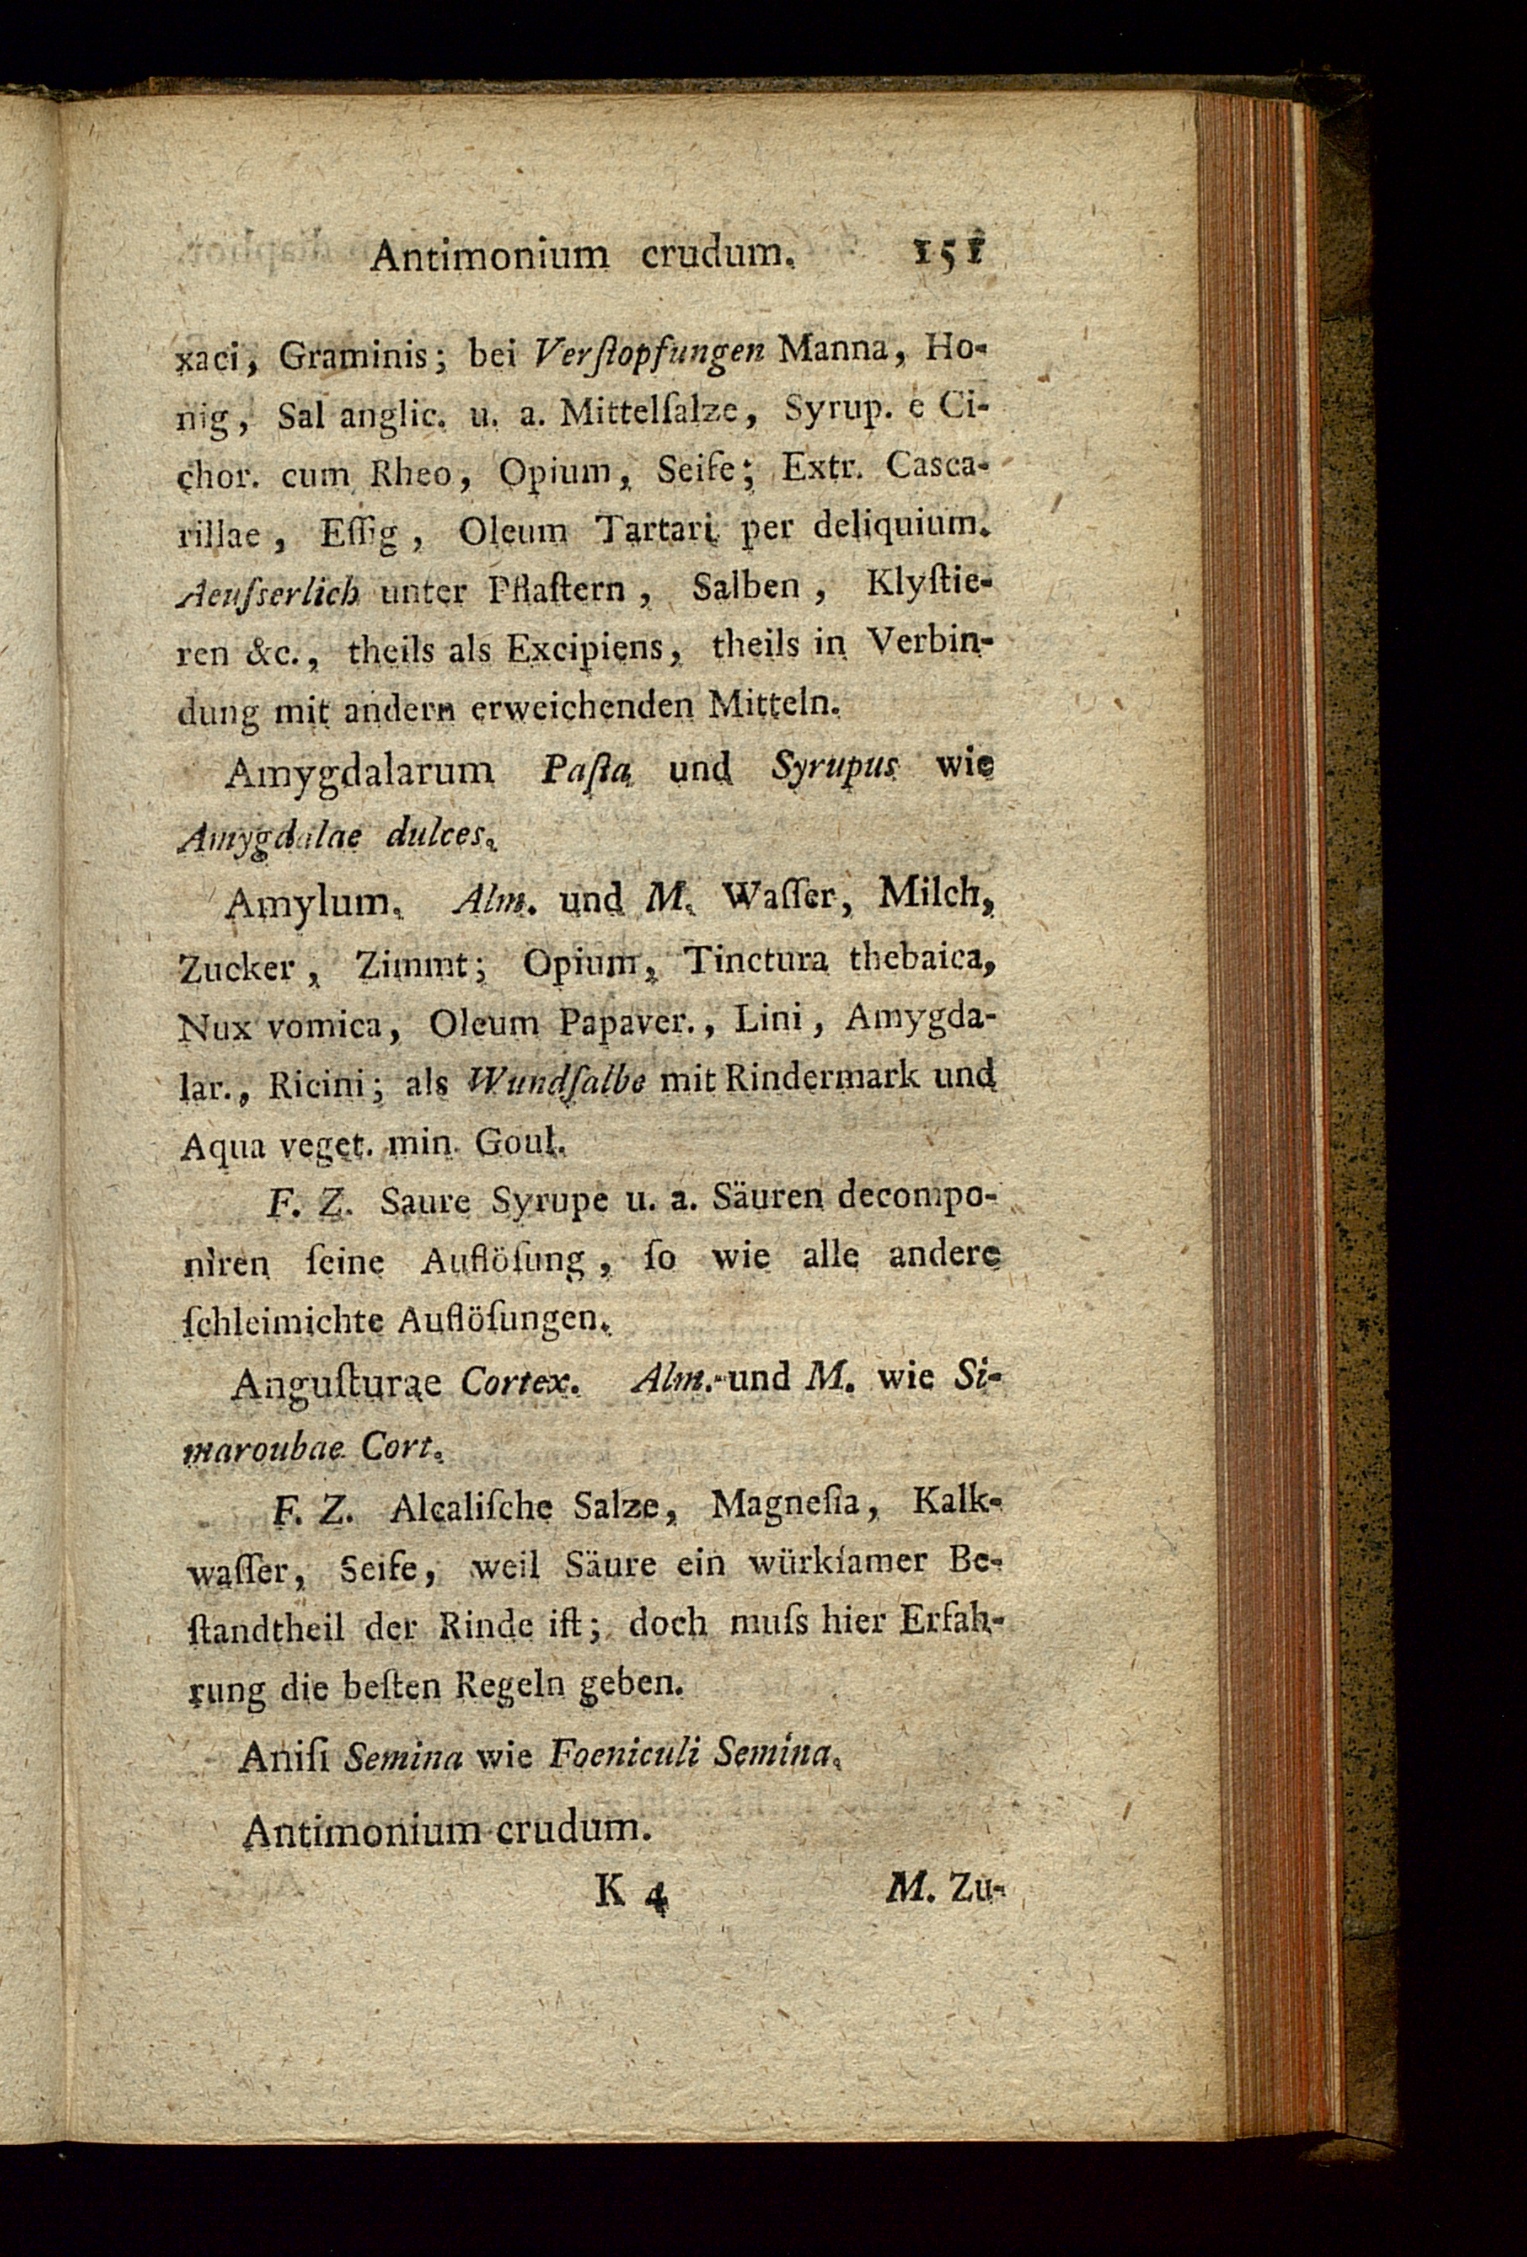 Antimonium crudum. 151
xaci, Graminis; bei Verſtopfungen Manna, Ho-
nig, Sal anglic. u. a. Mittelſalze, Syrup. e Ci-
chor. cum Rheo, Opium, Seife; Extr. Casca-
rillae, Eſſig, Oleum Tartari per deliquium.
Aeuſserlich unter Pflaſtern, Salben, Klyſtie-
ren &c., theils als Excipiens, theils in Verbin-
dung mit andern erweichenden Mitteln.
Amygdalarum Paſta und Syrupus wie
Amygdalae dulces.
Amylum. Alm. und M. Waſſer, Milch,
Zucker, Zimmt; Opium, Tinctura thebaica,
Nux vomica, Oleum Papaver., Lini, Amygda-
lar., Ricini; als Wundſalbe mit Rindermark und
Aqua veget. min. Goul.
F. Z. Saure Syrupe u. a. Säuren decompo-
niren ſeine Auflöſung, ſo wie alle andere
ſchleimichte Auflöſungen.
Anguſturae Cortex. Alm. und M. wie Si-
maroubae Cort.
F. Z. Alcaliſche Salze, Magneſia, Kalk-
waſſer, Seife, weil Säure ein würkſamer Be-
ſtandtheil der Rinde iſt; doch muſs hier Erfah-
rung die beſten Regeln geben.
Aniſi Semina wie Foeniculi Semina.
Antimonium crudum.
K 4 M. Zu-